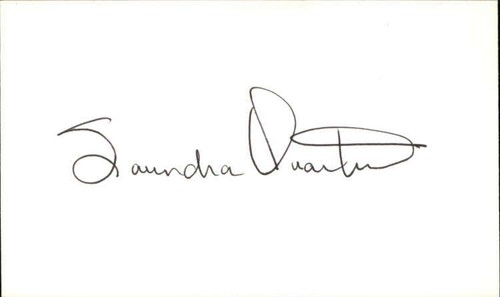 Saundra Quarterman